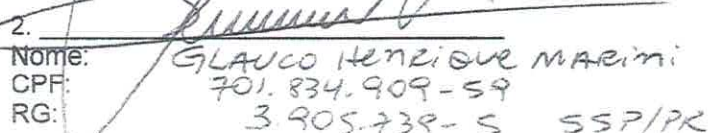 2.
Nome: GLAUCO HENRIQUE MARINI
CPF: 701.834.909-59
RG: 3.905.739-5 SSP/PR